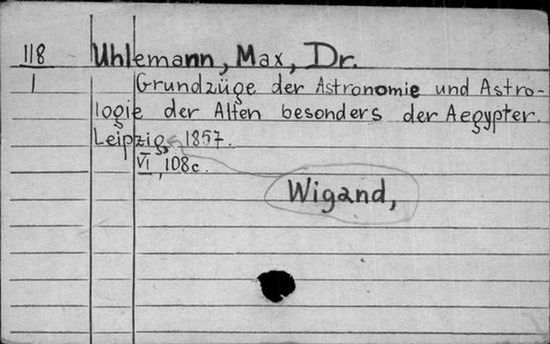 118 Uhlemann, Max, Dr.
1 Grundzüge der Astronomie und Astro-
logie der Alten besonders der Aegypter.
Leipzig, 1857.
VI, 108c.
Wigand,